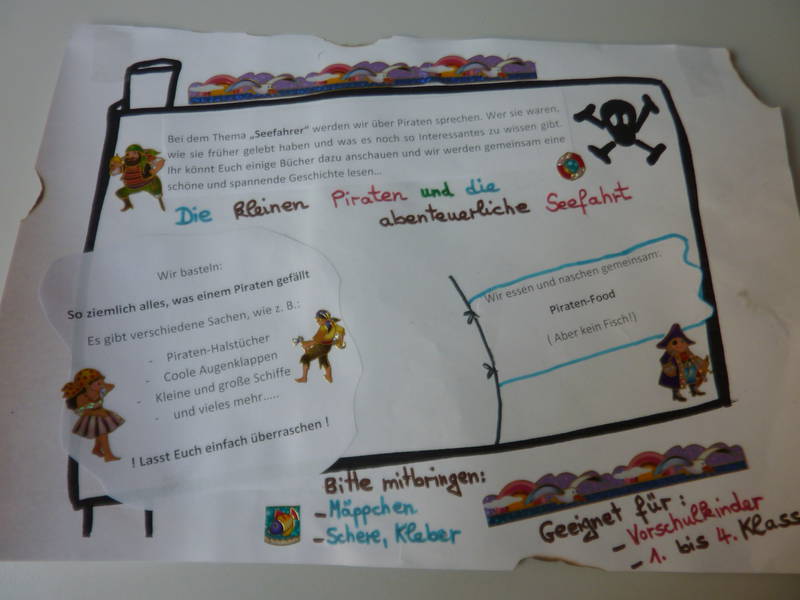 Bei dem Thema „Seefahrer“ werden wir über Piraten sprechen. Wer sie waren,
wie sie früher gelebt haben und was es noch so Interessantes zu wissen gibt.
Ihr könnt Euch einige Bücher dazu anschauen und wir werden gemeinsam eine
schöne und spannende Geschichte lesen...
Die kleinen Piraten und die
abenteuerliche Seefahrt
Wir basteln:
So ziemlich alles, was einem Piraten gefällt
Es gibt verschiedene Sachen, wie z. B.:
- Piraten-Halstücher
- Coole Augenklappen
- Kleine und große Schiffe
- und vieles mehr.....
! Lasst Euch einfach überraschen !
Wir essen und naschen gemeinsam:
Piraten-Food
( Aber kein Fisch!)
Bitte mitbringen:
- Mäppchen
- Schere, Kleber
Geeignet für:
- Vorschulkinder
- 1. bis 4. Klass